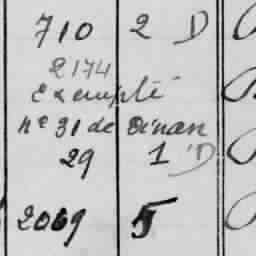 710 2 D
2174
Exempté
n° 31 de Dinan
29 1 D
2069 5